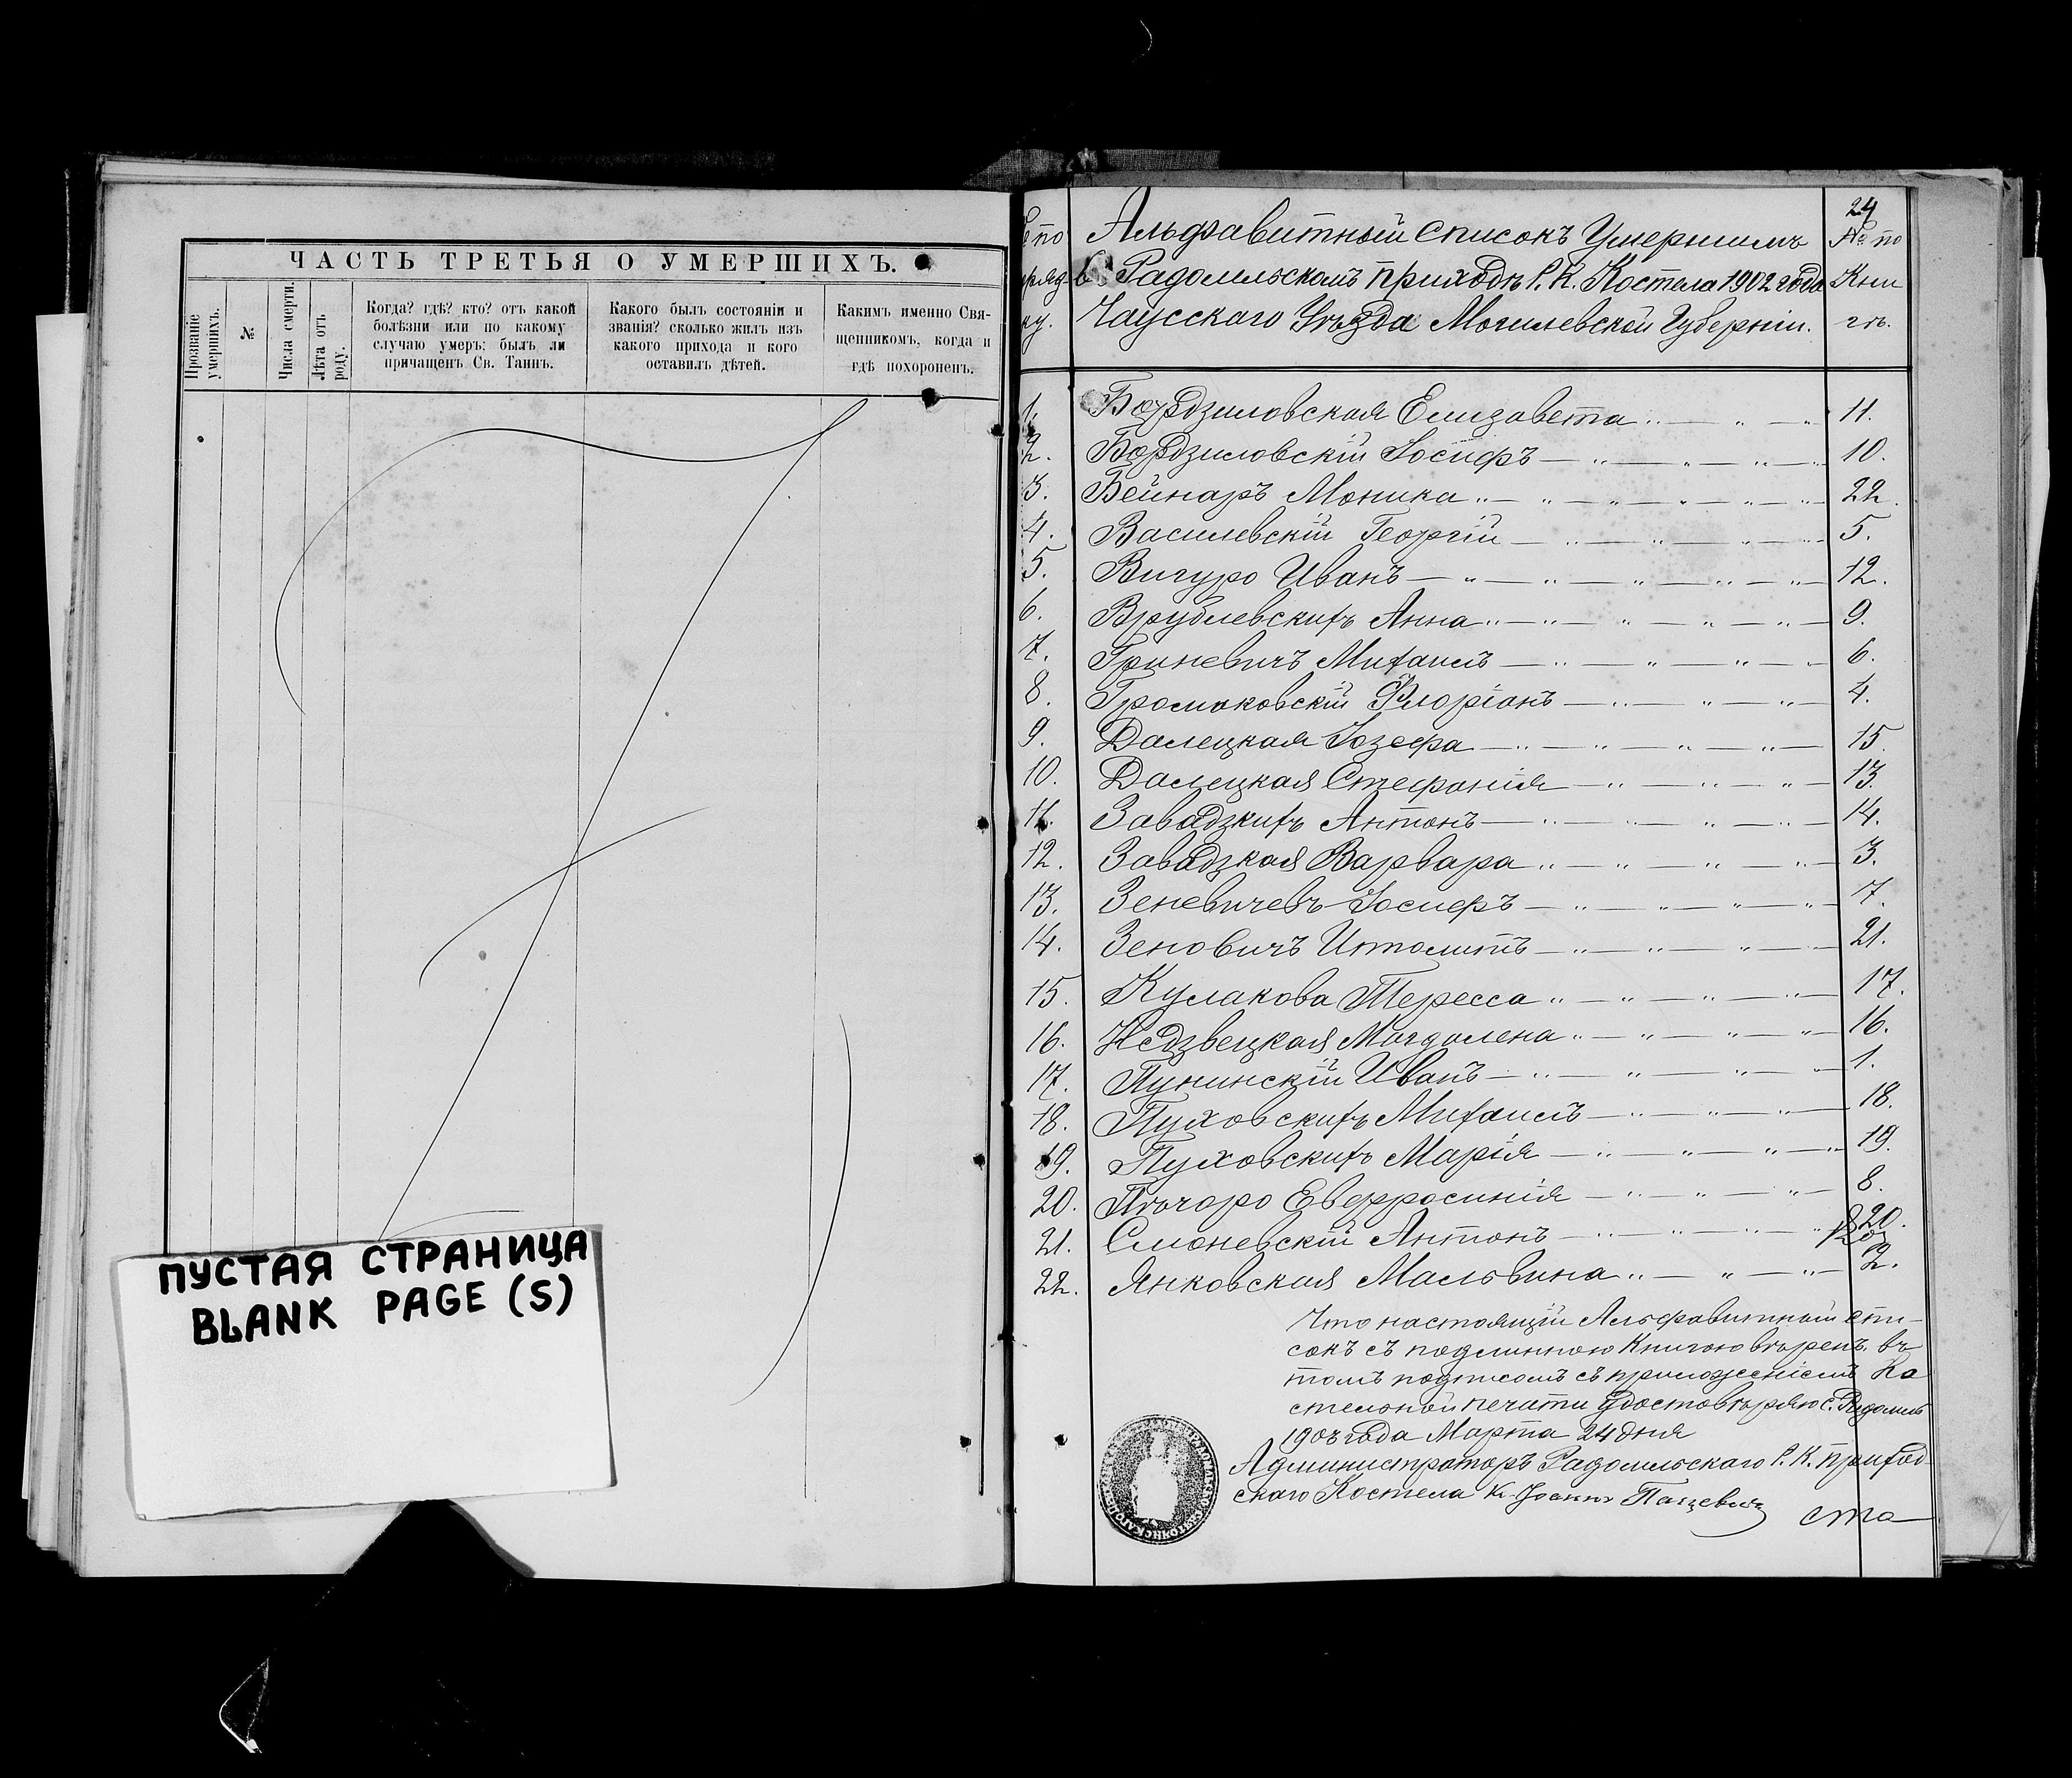 ЧАСТЬ ТРЕТЬЯ О УМЕРШИХЪ.
Прозваніе умершихъ.
№
Числа смерти.
Лѣта отъ роду.
Когда? гдѣ? кто? отъ какой
болѣзни или по какому
случаю умеръ; былъ ли
причащенъ Св. Таинъ.
Какого былъ состоянія и
званія? сколько жилъ изъ
какого прихода и кого
оставилъ дѣтей.
Какимъ именно Свя-
щенникомъ, когда и
гдѣ похороненъ.
ПУСТАЯ СТРАНИЦА
BLANK PAGE (S)
24
№ по Альфавитный списокъ Умершимъ № по
ряд- въ Радомльскомъ приходѣ Р. К. Костела 1902 года Кни
ку. Чаусскаго Уѣзда Могилевской Губерніи. гѣ.
1. Бордзиловская Елизавета 11.
2. Бордзиловскій Іосифъ 10.
3. Бейнаръ Моника 22.
4. Василевскій Георгій 5.
5. Вигуро Иванъ 12.
6. Врублевскихъ Анна 9.
7. Гриневичъ Михаилъ 6.
8. Громаковскій Флоріанъ 4.
9. Далецкая Іозефа 15.
10. Далецкая Стефанія 13.
11. Завадзкихъ Антонъ 14.
12. Завадзкая Варвара 3.
13. Зеневичевъ Іосифъ 7.
14. Зеновичъ Иполитъ 21.
15. Кулакова Тересса 17.
16. Недзвецкая Магдалена 16.
17. Пунинскій Иванъ 1.
18. Пуховскихъ Михаилъ 18.
19. Пуховскихъ Марія 19.
20. Пѣчоро Евфросинія 8.
21. Смоневскій Антонъ 20.
22. Янковская Мальвина 2.
Что настоящій Альфавитный спи-
сокъ съ подлинною Книгою вѣренъ, въ
томъ подписомъ съ приложеніемъ Ко
стельной печати удостовѣряю с. Радомль
1903 года Марта 24 дня
Администраторъ Радомльскаго Р. К. приход
скаго Костела К. Іоаннъ
ста